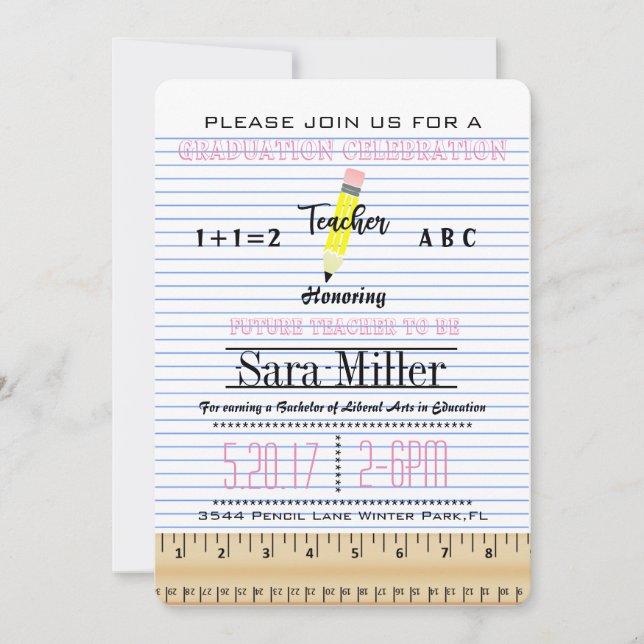 PLEASE JOIN US FOR A
GRADUATION CELEBRATION
Teacher
1+1=2 A B C
Honoring
FUTURE TEACHER TO BE
Sara Miller
For earning a Bachelor of Liberal Arts in Education
************************************
5.20.17 2-6PM
************************************
3544 PENCIL LANE WINTER PARK,FL
1 2 3 4 5 6 7 8
29 28 27 26 25 24 23 22 21 20 19 18 17 16 15 14 13 12 11 10 9